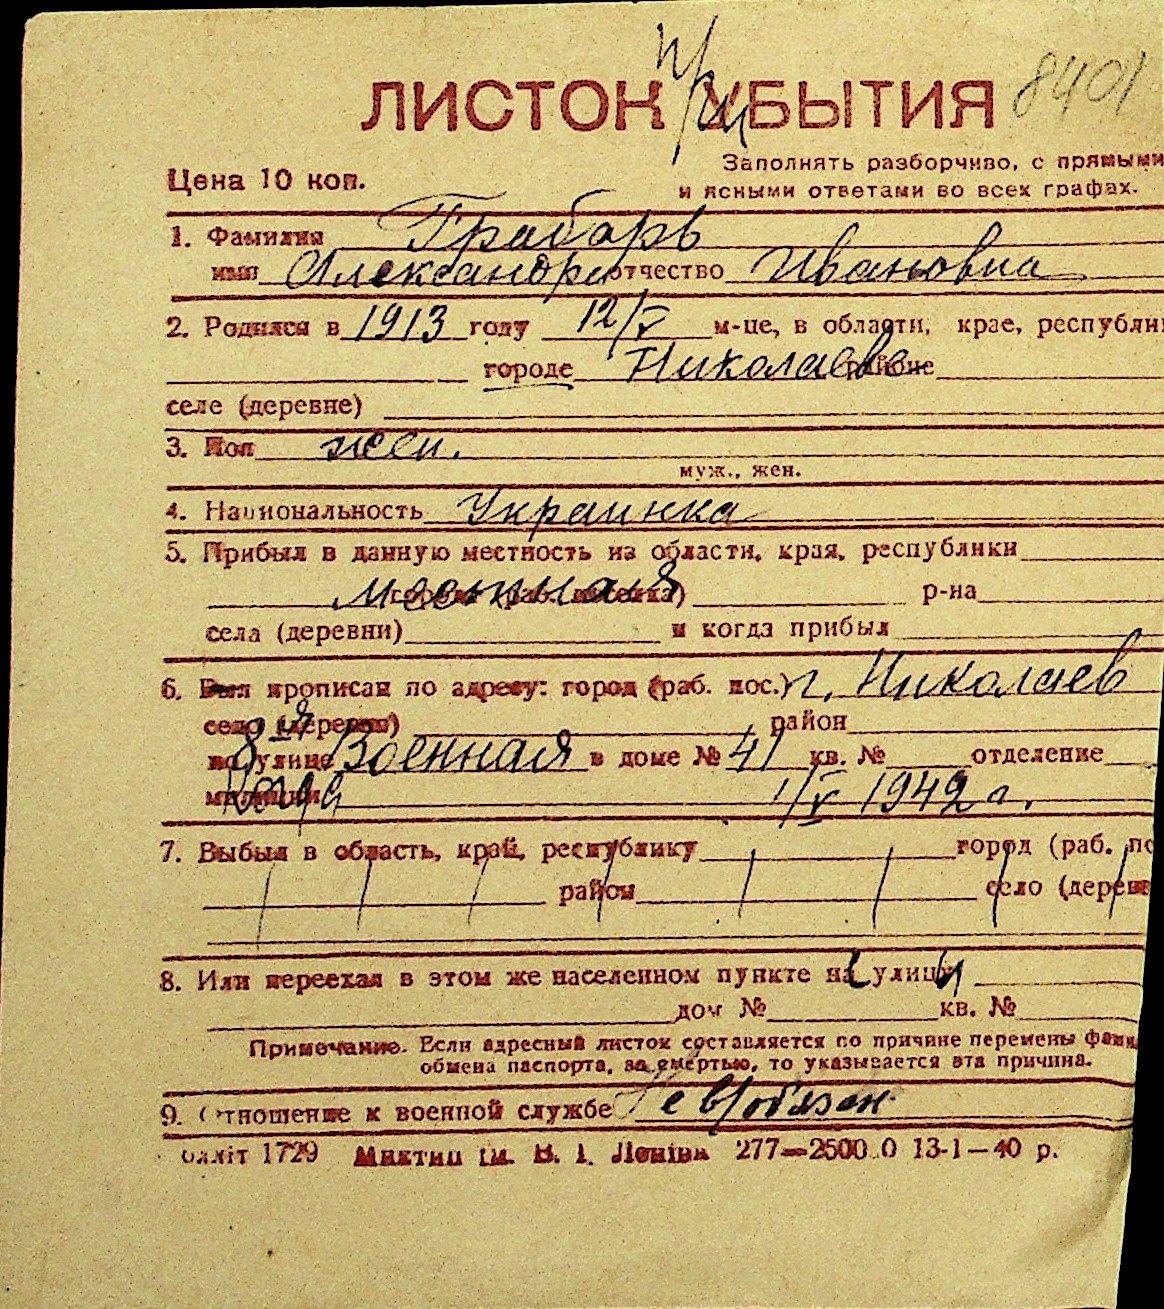 ЛИСТОК УБЫТИЯ 8401
Цена 10 коп.
Заполнять разборчиво, с прямыми
и ясными ответами во всех графах.
1. Фамилия Грабарь
имя Александра отчество Ивановна
2. Родился в 1913 году 12/V м-це, в области, крае, республи
городе Николаеве районе
селе (деревне)
3. Пол жен.
муж., жен.
4. Национальность Украинка
5. Прибыл в данную местность из области, края, республики
местная р-на
села (деревни) и когда прибыл
6. Был прописан по адресу: город (раб. пос.) г. Николаев
село (деревня) район
по улице 8ая Военная в доме № 41 кв. № отделение
милиции 1/V 1942 г.
7. Выбыл в область, край, республику город (раб. по
район село (дерев
8. Или переехал в этом же населенном пункте на улицу
дом № кв. №
Примечание. Если адресный листок составляется по причине перемены фами
обмена паспорта, за смертью, то указывается эта причина.
9. Отношение к военной службе Не в/обязан
олліт 1729 ім. В. І. Леніна 13-1—40 р.